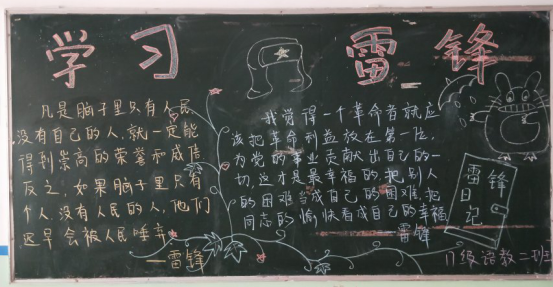 学习 雷锋
凡是脑子里只有人民
没有自己的人,就一定能
得到崇高的荣誉和威信
反之,如果脑子里只有
个人,没有人民的人,他们
迟早会被人民唾弃
—雷锋
我觉得一个革命者就应
该把革命利益放在第一位,
为党的事业贡献出自己的一
切,这才是最幸福的,把别人
的困难当成自己的困难,把
同志的愉快看成自己的幸福
—雷锋
雷锋
日记
17级语教二班